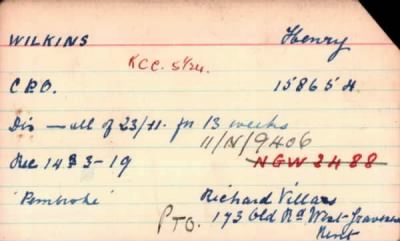 WILKINS Henry
KCC. 5/24.
C.P.O. 158654
Dis — all of 23/11. for 13 weeks
11/N/9406
Rec 14 3-19 NGW 2488
'Pembroke' Richard Villars
PTO. 173 Old Rd West Gravesen
Kent